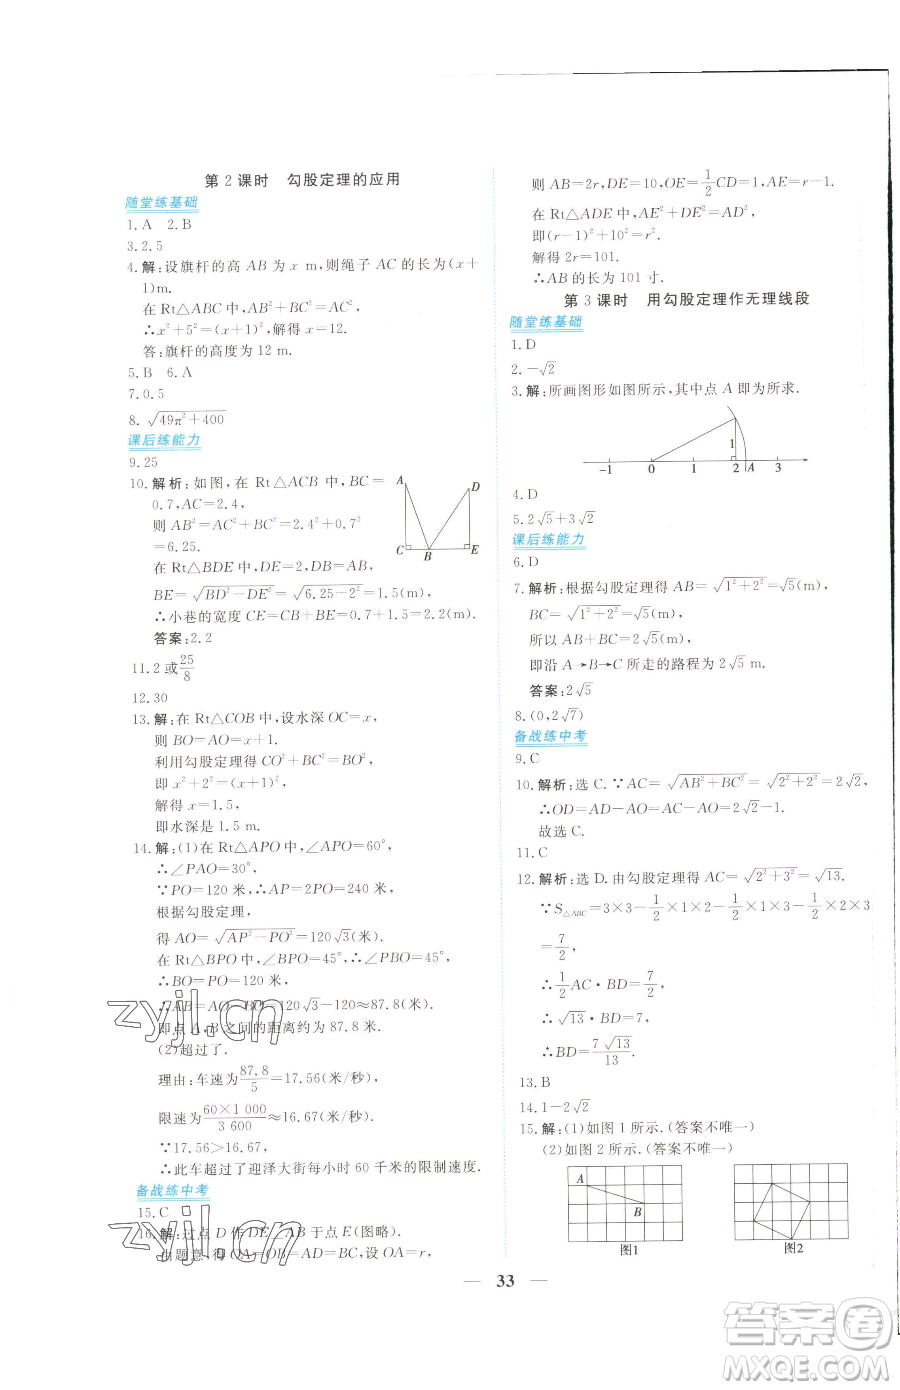 第2课时 勾股定理的应用
随堂练基础
1.A 2.B
3.2.5
4.解:设旗杆的高 AB 为 x m,则绳子 AC 的长为(x+
1)m.
在 Rt△ABC 中,AB²+BC²=AC²,
∴x²+5²=(x+1)²,解得 x=12.
答:旗杆的高度为 12 m.
5.B 6.A
7.0.5
8.√(49π²+400)
课后练能力
9.25
10.解析:如图,在 Rt△ACB 中,BC=
0.7,AC=2.4,
则 AB²=AC²+BC²=2.4²+0.7²
=6.25.
在 Rt△BDE 中,DE=2,DB=AB,
BE=√(BD²-DE²)=√(6.25-2²)=1.5(m)
∴小巷的宽度 CE=CB+BE=0.7+1.5=2.2(m).
答案:2.2
A D C B E
11.2 或 25/8
12.30
13.解:在 Rt△COB 中,设水深 OC=x,
则 BO=AO=x+1.
利用勾股定理得 CO²+BC²=BO²,
即 x²+2²=(x+1)²,
解得 x=1.5,
即水深是 1.5 m.
14.解:(1)在 Rt△APO 中,∠APO=60°,
∴∠PAO=30°,
∵PO=120 米,∴AP=2PO=240 米,
根据勾股定理,
得 AO=√(AP²-PO²)=120√3(米).
在 Rt△BPO 中,∠BPO=45°,∠PBO=45°,
∴BO=PO=120 米,
∴AB=AO-BO=120√3-120≈87.8(米)
即点 A,B 之间的距离约为 87.8 米.
(2)超过了.
理由:车速为 87.8/5=17.56(米/秒),
限速为 60×1 000/3 600≈16.67(米/秒),
∵17.56>16.67,
∴此车超过了迎泽大街每小时 60 千米的限制速度.
备战练中考
15.C
16.解:过点 D 作 DE⊥AB 于点 E(图略).
由题意,得 OA=OB=AD=BC,设 OA=r,
则 AB=2r,DE=10,OE=1/2CD=1,AE=r-1.
在 Rt△ADE 中,AE²+DE²=AD²,
即(r-1)²+10²=r²
解得 2r=101.
∴AB 的长为 101 寸.
第3课时 用勾股定理作无理线段
随堂练基础
1.D
2.-√2
3.解:所画图形如图所示,其中点 A 即为所求.
1
-1 0 1 2 A 3
4.D
5.2√5+3√2
课后练能力
6.D
7.解析:根据勾股定理得 AB=√(1²+2²)=√5(m)
BC=√(1²+2²)=√5(m)
所以 AB+BC=2√5(m),
即沿 A→B→C 所走的路程为 2√5 m.
答案:2√5
8.(0,2√7)
备战练中考
9.C
10.解析:选 C.∵AC=√(AB²+BC²)=√(2²+2²)=2√2,
∴OD=AD-AO=AC-AO=2√2-1.
故选 C.
11.C
12.解析:选 D.由勾股定理得 AC=√(2²+3²)=√13.
∵S△ABC=3×3-1/2×1×2-1/2×1×3-1/2×2×3
=7/2,
∴1/2AC·BD=7/2,
∴√13·BD=7,
∴BD=7√13/13.
13.B
14.1-2√2
15.解:(1)如图 1 所示.(答案不唯一)
(2)如图 2 所示.(答案不唯一)
A B
图1 图2
33
zyjl.cn
zyjl.cn
答案圈
MXQE.COM